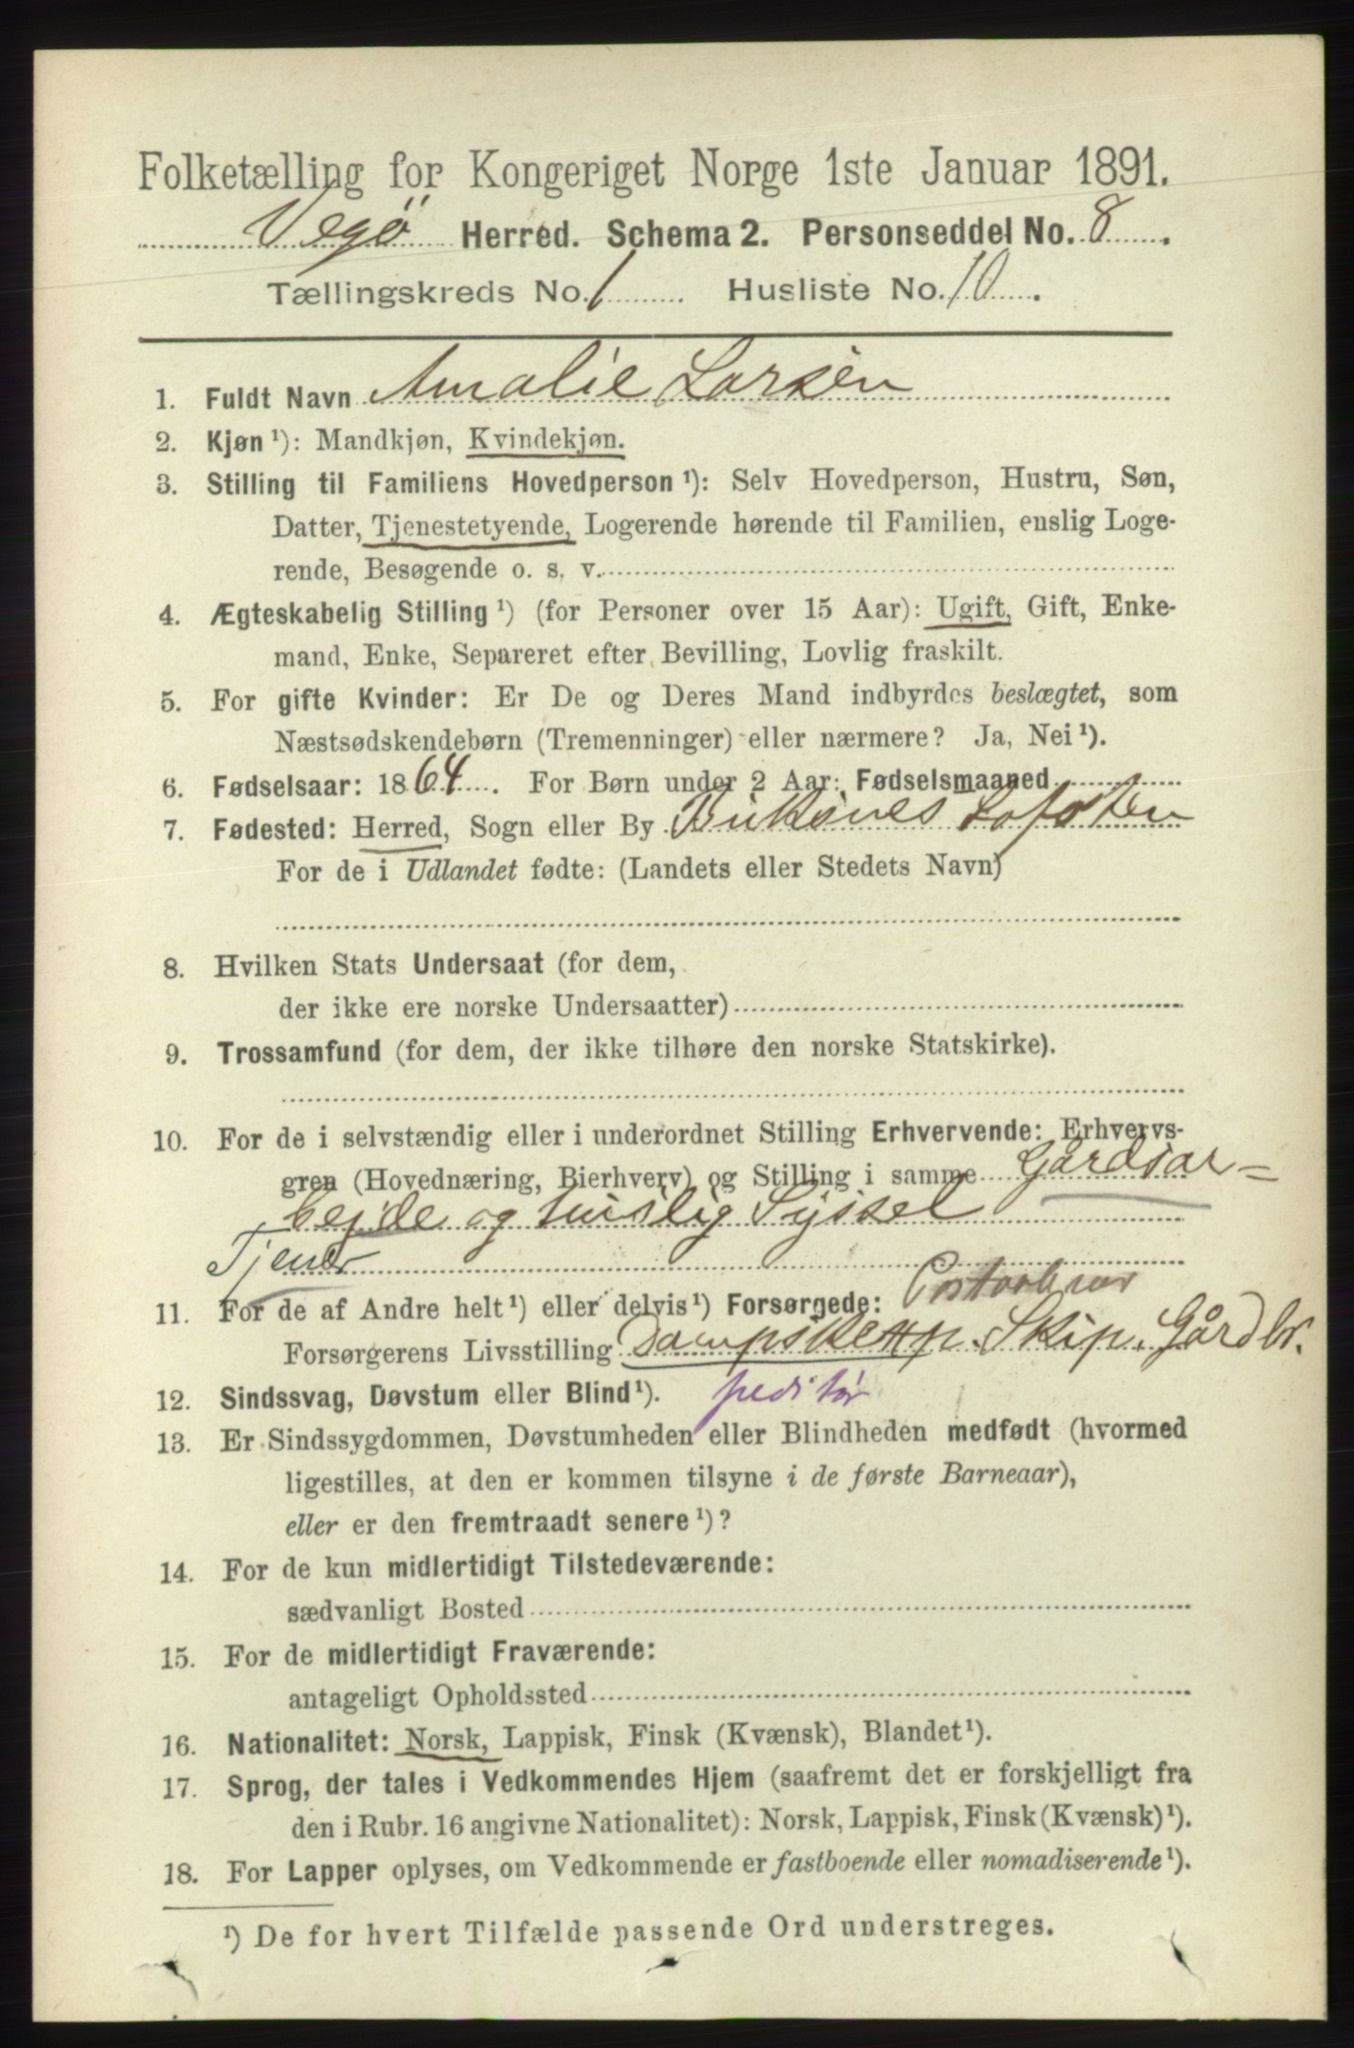 Folketælling for Kongeriget Norge 1ste Januar 1891.
Vegø Herred. Schema 2. Personseddel No. 8.
Tællingskreds No. 1. Husliste No. 10.
1. Fuldt Navn Amalie Larsen
2. Kjøn ¹): Mandkjøn, Kvindekjøn.
3. Stilling til Familiens Hovedperson ¹): Selv Hovedperson, Hustru, Søn,
Datter, Tjenestetyende, Logerende hørende til Familien, enslig Loge-
rende, Besøgende o. s. v.
4. Ægteskabelig Stilling ¹) (for Personer over 15 Aar): Ugift, Gift, Enke-
mand, Enke, Separeret efter Bevilling, Lovlig fraskilt.
5. For gifte Kvinder: Er De og Deres Mand indbyrdes beslægtet, som
Næstsødskendebørn (Tremenninger) eller nærmere? Ja, Nei ¹).
6. Fødselsaar: 1864. For Børn under 2 Aar: Fødselsmaaned
7. Fødested: Herred, Sogn eller By Buksnes Lofoten
For de i Udlandet fødte: (Landets eller Stedets Navn)
8. Hvilken Stats Undersaat (for dem,
der ikke ere norske Undersaatter)
9. Trossamfund (for dem, der ikke tilhøre den norske Statskirke).
10. For de i selvstændig eller i underordnet Stilling Erhvervende: Erhvervs-
gren (Hovednæring, Bierhverv) og Stilling i samme Gårdsar-
bejde og huslig Syssel
Tjener
11. For de af Andre helt ¹) eller delvis ¹) Forsørgede:
Forsørgerens Livsstilling Skip. Gårdbr.
12. Sindssvag, Døvstum eller Blind ¹). peditør
13. Er Sindssygdommen, Døvstumheden eller Blindheden medfødt (hvormed
ligestilles, at den er kommen tilsyne i de første Barneaar),
eller er den fremtraadt senere ¹)?
14. For de kun midlertidigt Tilstedeværende:
sædvanligt Bosted
15. For de midlertidigt Fraværende:
antageligt Opholdssted
16. Nationalitet: Norsk, Lappisk, Finsk (Kvænsk), Blandet ¹).
17. Sprog, der tales i Vedkommendes Hjem (saafremt det er forskjelligt fra
den i Rubr. 16 angivne Nationalitet): Norsk, Lappisk, Finsk (Kvænsk) ¹).
18. For Lapper oplyses, om Vedkommende er fastboende eller nomadiserende ¹).
¹) De for hvert Tilfælde passende Ord understreges.